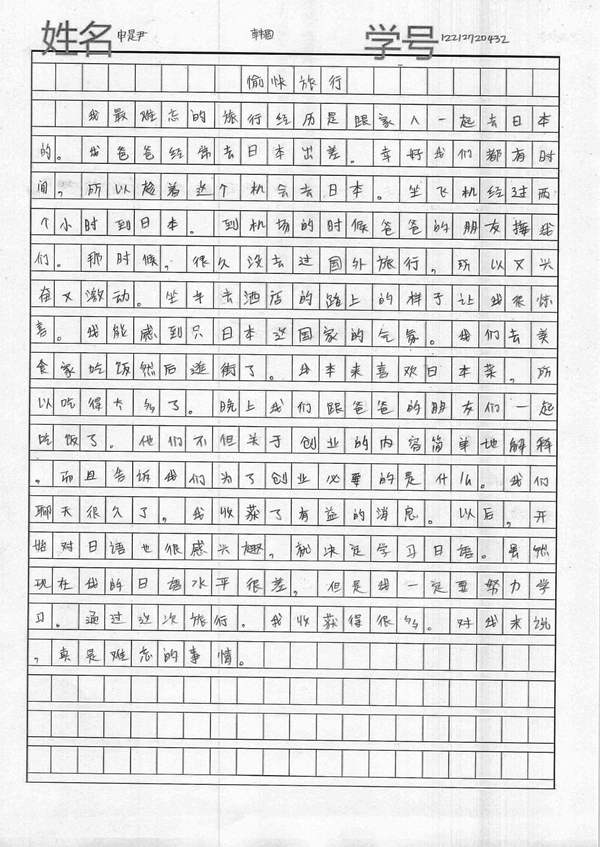 姓名 申是尹 韩国 学号 12212720432
愉快旅行
我最难忘的旅行经历是跟家人一起去日本
的。我爸爸经常去日本出差。幸好我们都有时
间，所以趁着这个机会去日本。坐飞机经过两
个小时到日本。到机场的时候爸爸的朋友接我
们。那时候，很久没去过国外旅行，所以又兴
奋又激动。坐车去酒店的路上的样子让我很惊
喜。我能感到只日本这国家的气氛。我们去美
食家吃饭然后逛街了。我本来喜欢日本菜，所
以吃得太多了。晚上我们跟爸爸的朋友们一起
吃饭了。他们不但关于创业的内容简单地解释
，而且告诉我们为了创业必要的是什么。我们
聊天很久了。我收获了有益的消息。以后，开
始对日语也很感兴趣，就决定学习日语。虽然
现在我的日语水平很差，但是我一定要努力学
习。通过这次旅行。我收获得很多。对我来说
，真是难忘的事情。